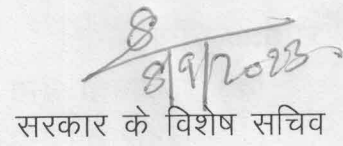 8/9/2023
सरकार के विशेष सचिव